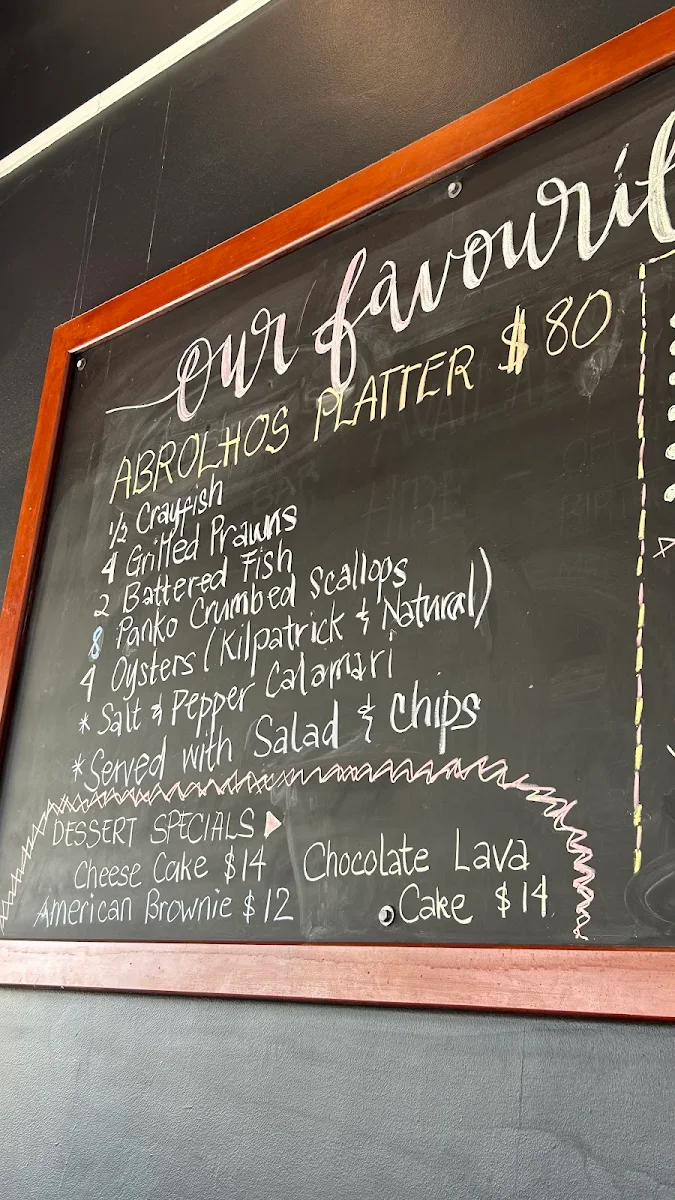 our favourit
ABROLHOS PLATTER $80
1/2 Crayfish
4 Grilled Prawns
2 Battered Fish
8 Panko Crumbed Scallops
4 Oysters (Kilpatrick & Natural)
* Salt & Pepper Calamari
* Served with Salad & Chips
DESSERT SPECIALS ▶
Cheese Cake $14
American Brownie $12
Chocolate Lava
Cake $14